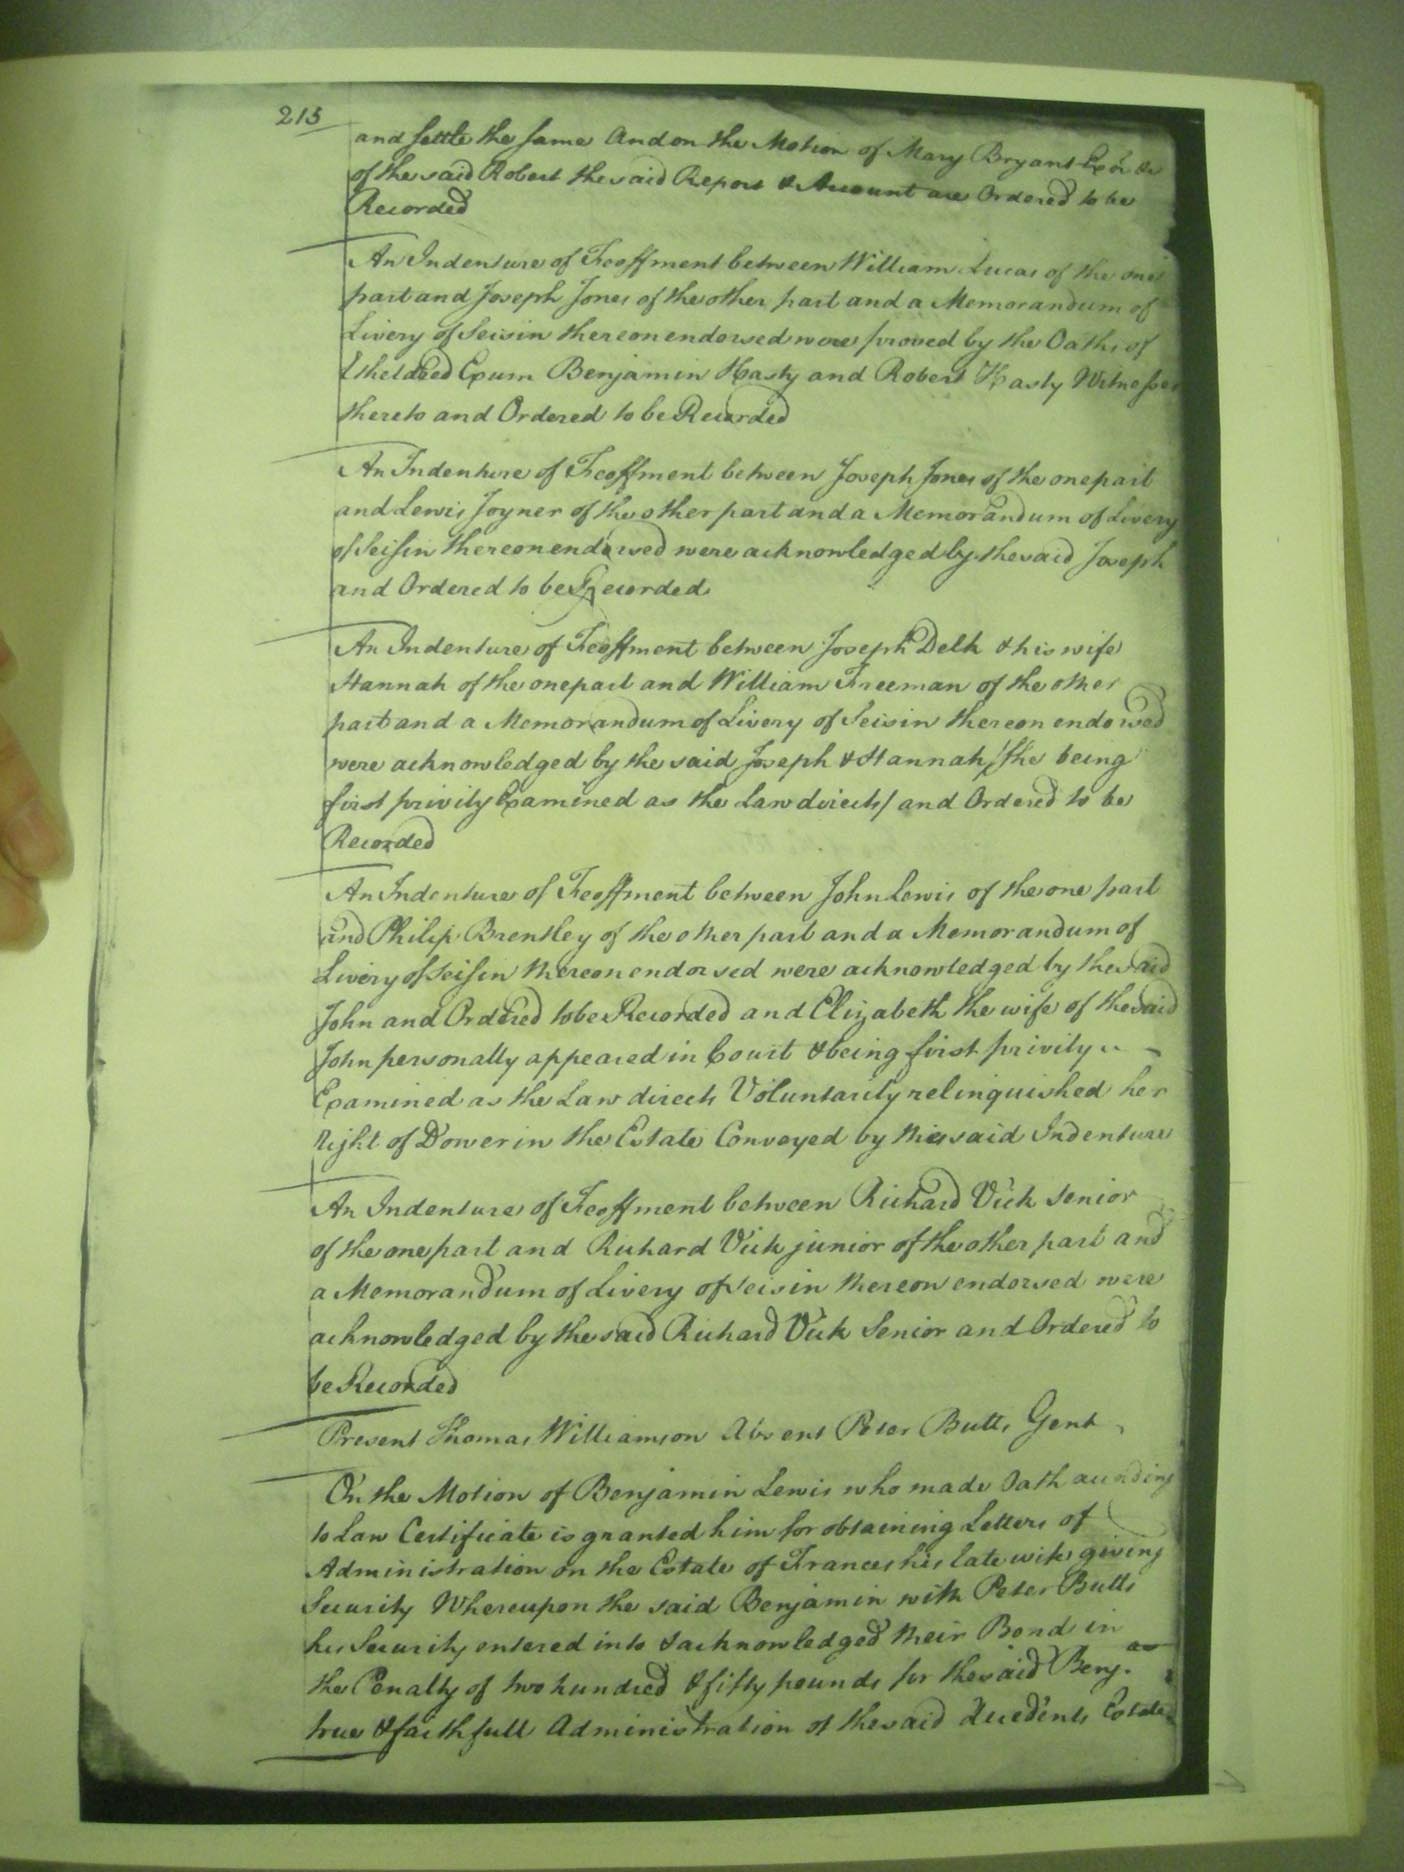 215
and settle the same And on the Motion of Mary Bryant
of the said Robert the said Report & Account are Ordered to be
Recorded
An Indenture of Feoffment between William Lucas of the one
part and Joseph Jones of the other part and a Memorandum of
Livery of Seisin thereon endorsed were proved by the Oaths of
Etheldred Exum Benjamin Hasty and Robert Hasty Witnesses
thereto and Ordered to be Recorded
An Indenture of Feoffment between Joseph Jones of the one part
and Lewis Joyner of the other part and a Memorandum of Livery
of Seisin thereon endorsed were acknowledged by the said Joseph
and Ordered to be Recorded
An Indenture of Feoffment between Joseph Delk & his wife
Hannah of the one part and William Freeman of the other
part and a Memorandum of Livery of Seisin thereon endorsed
were acknowledged by the said Joseph & Hannah /she being
first privily Examined as the Law directs/ and Ordered to be
Recorded
An Indenture of Feoffment between John Lewis of the one part
and Philip Brentley of the other part and a Memorandum of
Livery of Seisin thereon endorsed were acknowledged by the said
John and Ordered to be Recorded and Elizabeth the wife of the said
John personally appeared in Court & being first privily
Examined as the Law directs Voluntarily relinquished her
right of Dower in the Estate Conveyed by the said Indenture
An Indenture of Feoffment between Richard Vick Senior
of the one part and Richard Vick junior of the other part and
a Memorandum of Livery of Seisin thereon endorsed were
acknowledged by the said Richard Vick Senior and Ordered to
be Recorded
Present Thomas Williamson Absent Peter Butts Gent
On the Motion of Benjamin Lewis who made Oath according
to Law Certificate is granted him for obtaining Letters of
Administration on the Estate of Frances his late wife giving
Security Whereupon the said Benjamin with Peter Butts
his Security entered into & acknowledged their Bond in
the Penalty of two hundred & fifty pounds for the said Benj.a
true & faithfull Administration of the said decedents Estate